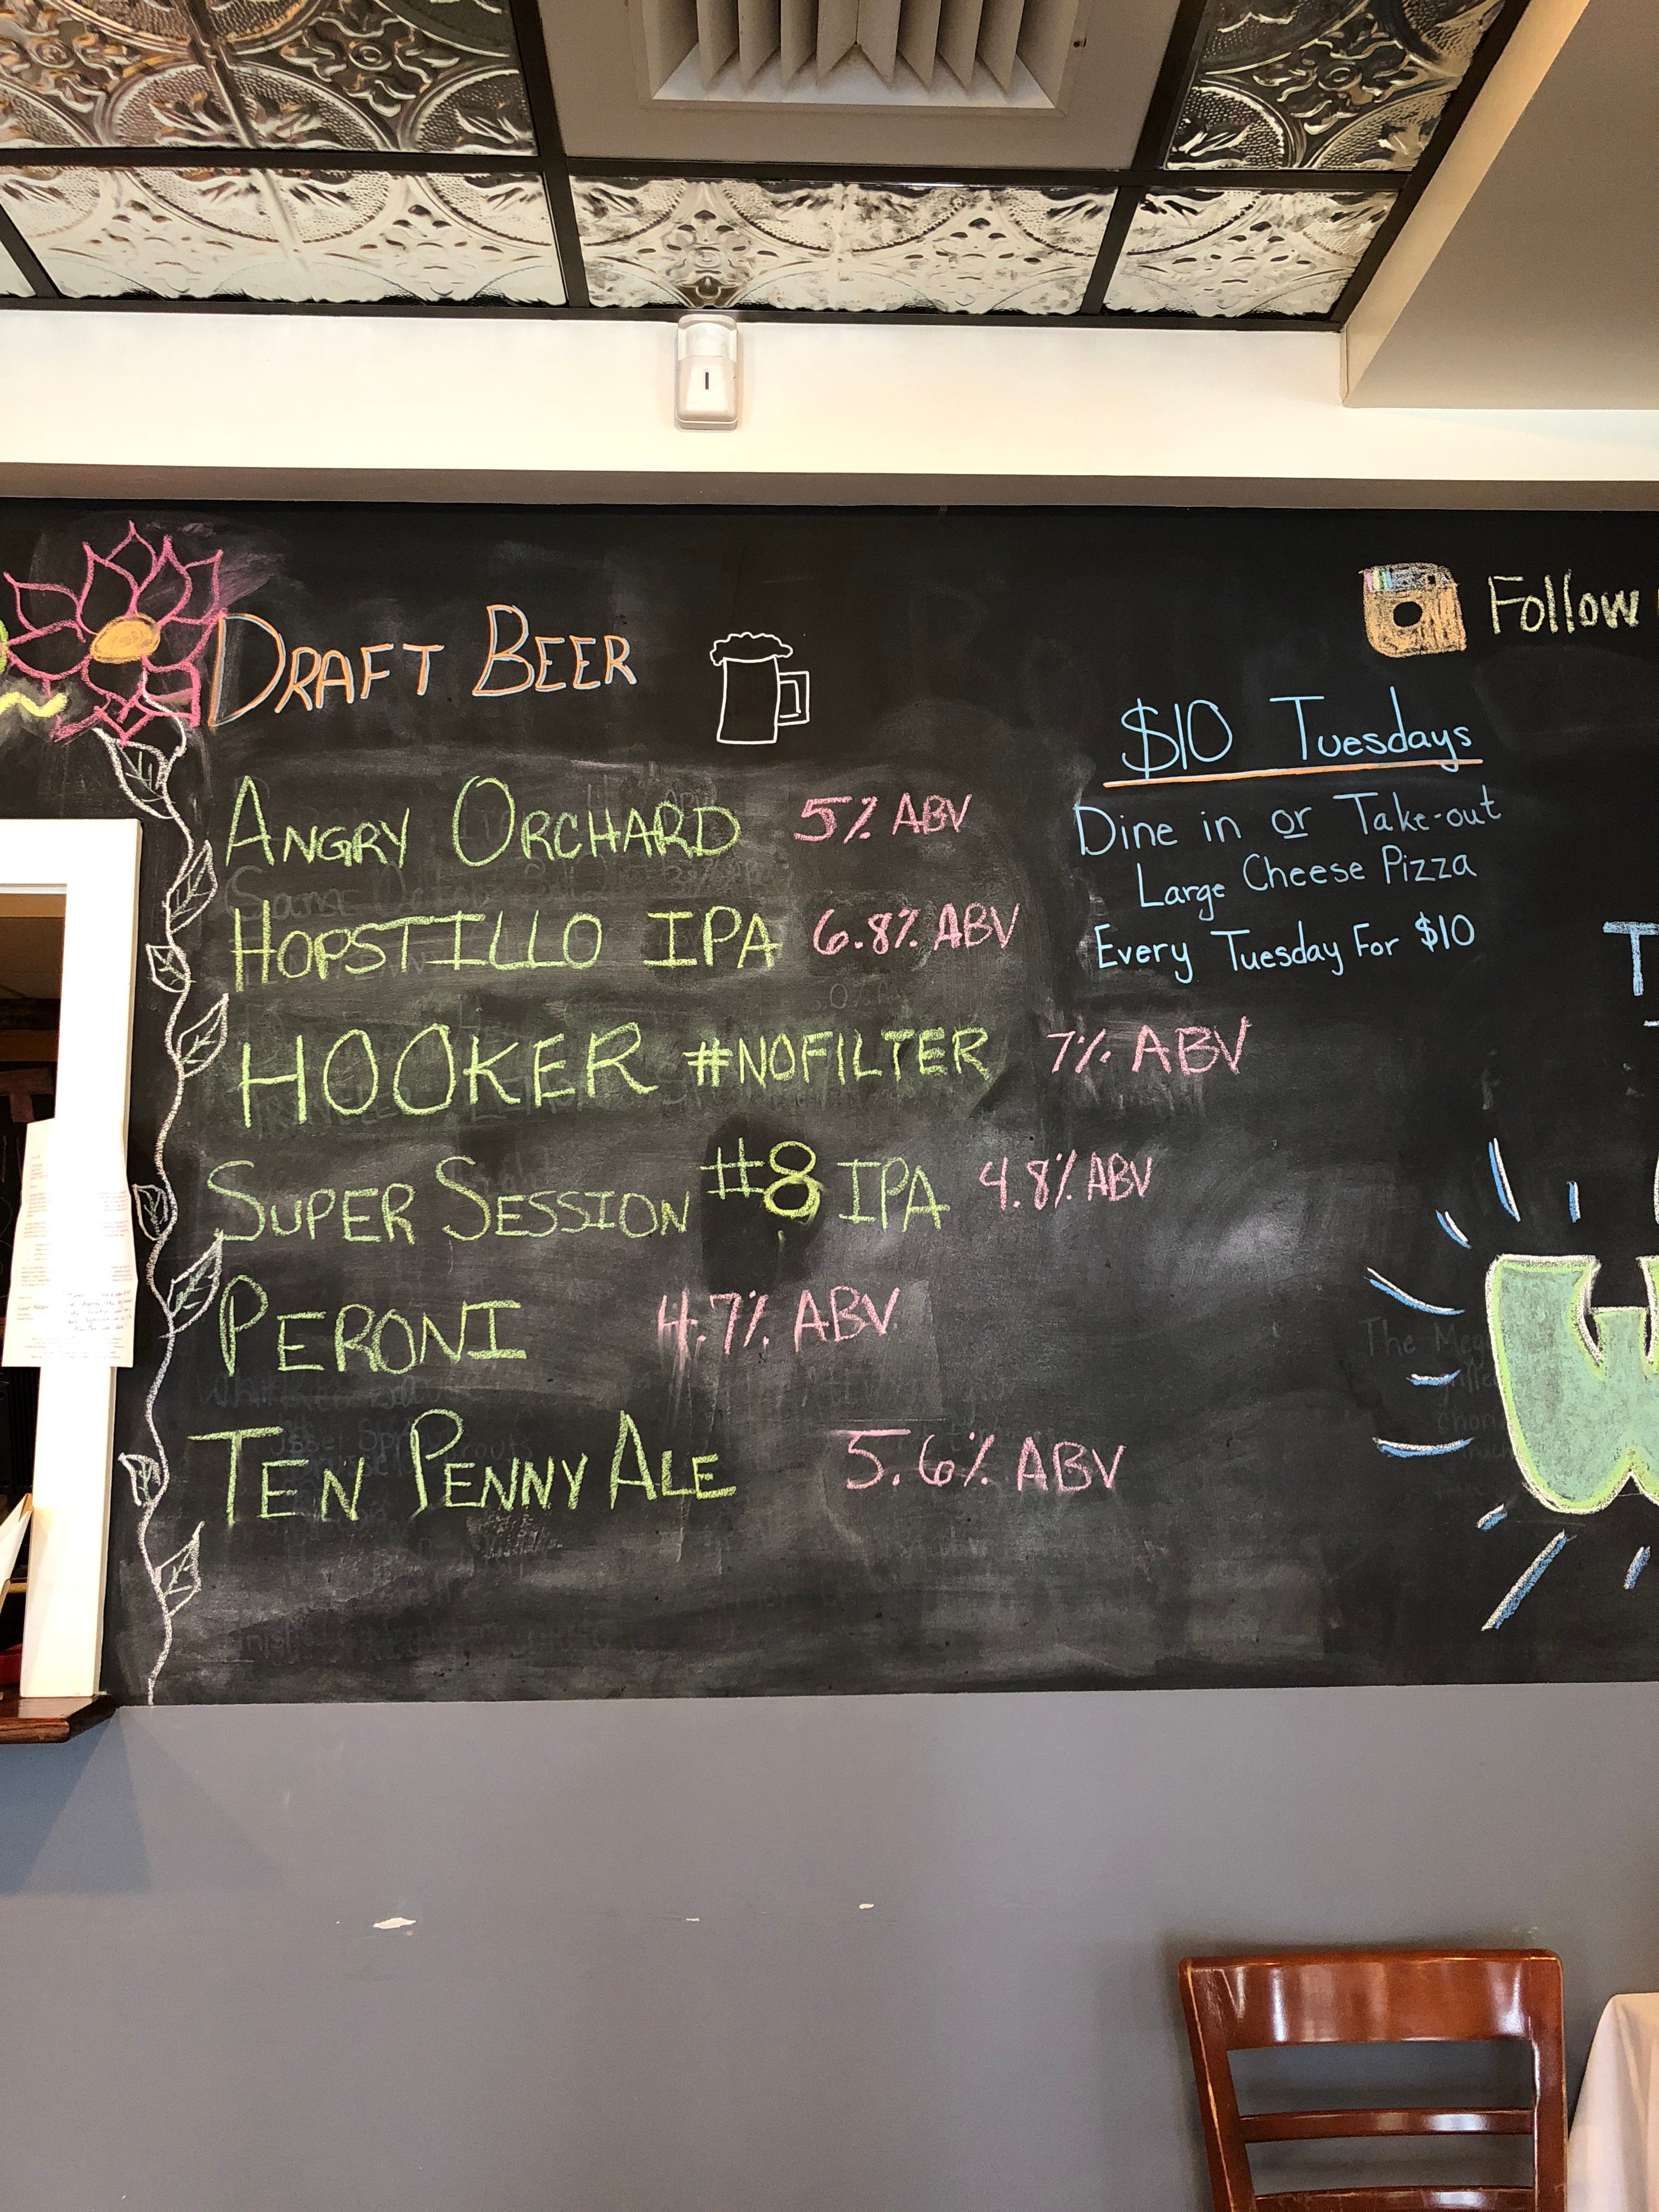 DRAFT BEER
ANGRY ORCHARD 5% ABV
HOPSTILLO IPA 6.8% ABV
HOOKER #NOFILTER 7% ABV
SUPER SESSION #8 IPA 4.8% ABV
PERONI 4.7% ABV
TEN PENNY ALE 5.6% ABV
Follow
$10 Tuesdays
Dine in or Take-out
Large Cheese Pizza
Every Tuesday For $10
T
W